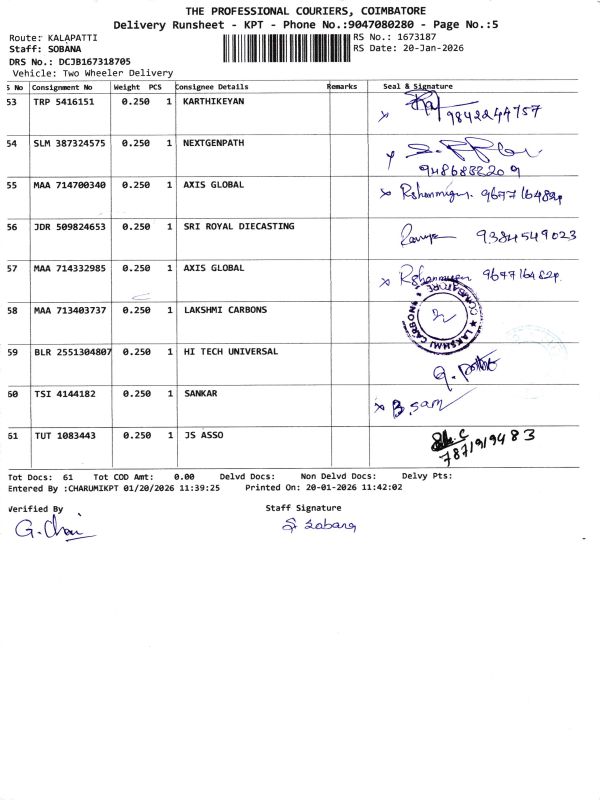 THE PROFESSIONAL COURIERS, COIMBATORE
Delivery Runsheet - KPT - Phone No.:9047080280 - Page No.:5
Route: KALAPATTI RS No.: 1673187
Staff: SOBANA RS Date: 20-Jan-2026
DRS No.: DCJB167318705
Vehicle: Two Wheeler Delivery
S No Consignment No Weight PCS Consignee Details Remarks Seal & Signature
53 TRP 5416151 0.250 1 KARTHIKEYAN 9842244757
54 SLM 387324575 0.250 1 NEXTGENPATH
9486882209
55 MAA 714700340 0.250 1 AXIS GLOBAL Rshanmugam
56 JDR 509824653 0.250 1 SRI ROYAL DIECASTING 9384549023
57 MAA 714332985 0.250 1 AXIS GLOBAL Rshanmugam
58 MAA 713403737 0.250 1 LAKSHMI CARBONS LAKSHMI CARBONS ★ COIMBATORE
59 BLR 2551304807 0.250 1 HI TECH UNIVERSAL
60 TSI 4144182 0.250 1 SANKAR B. Sam
61 TUT 1083443 0.250 1 JS ASSO
7871919483
Tot Docs: 61 Tot COD Amt: 0.00 Delvd Docs: Non Delvd Docs: Delvy Pts:
Entered By :CHARUMIKPT 01/20/2026 11:39:25 Printed On: 20-01-2026 11:42:02
Verified By Staff Signature